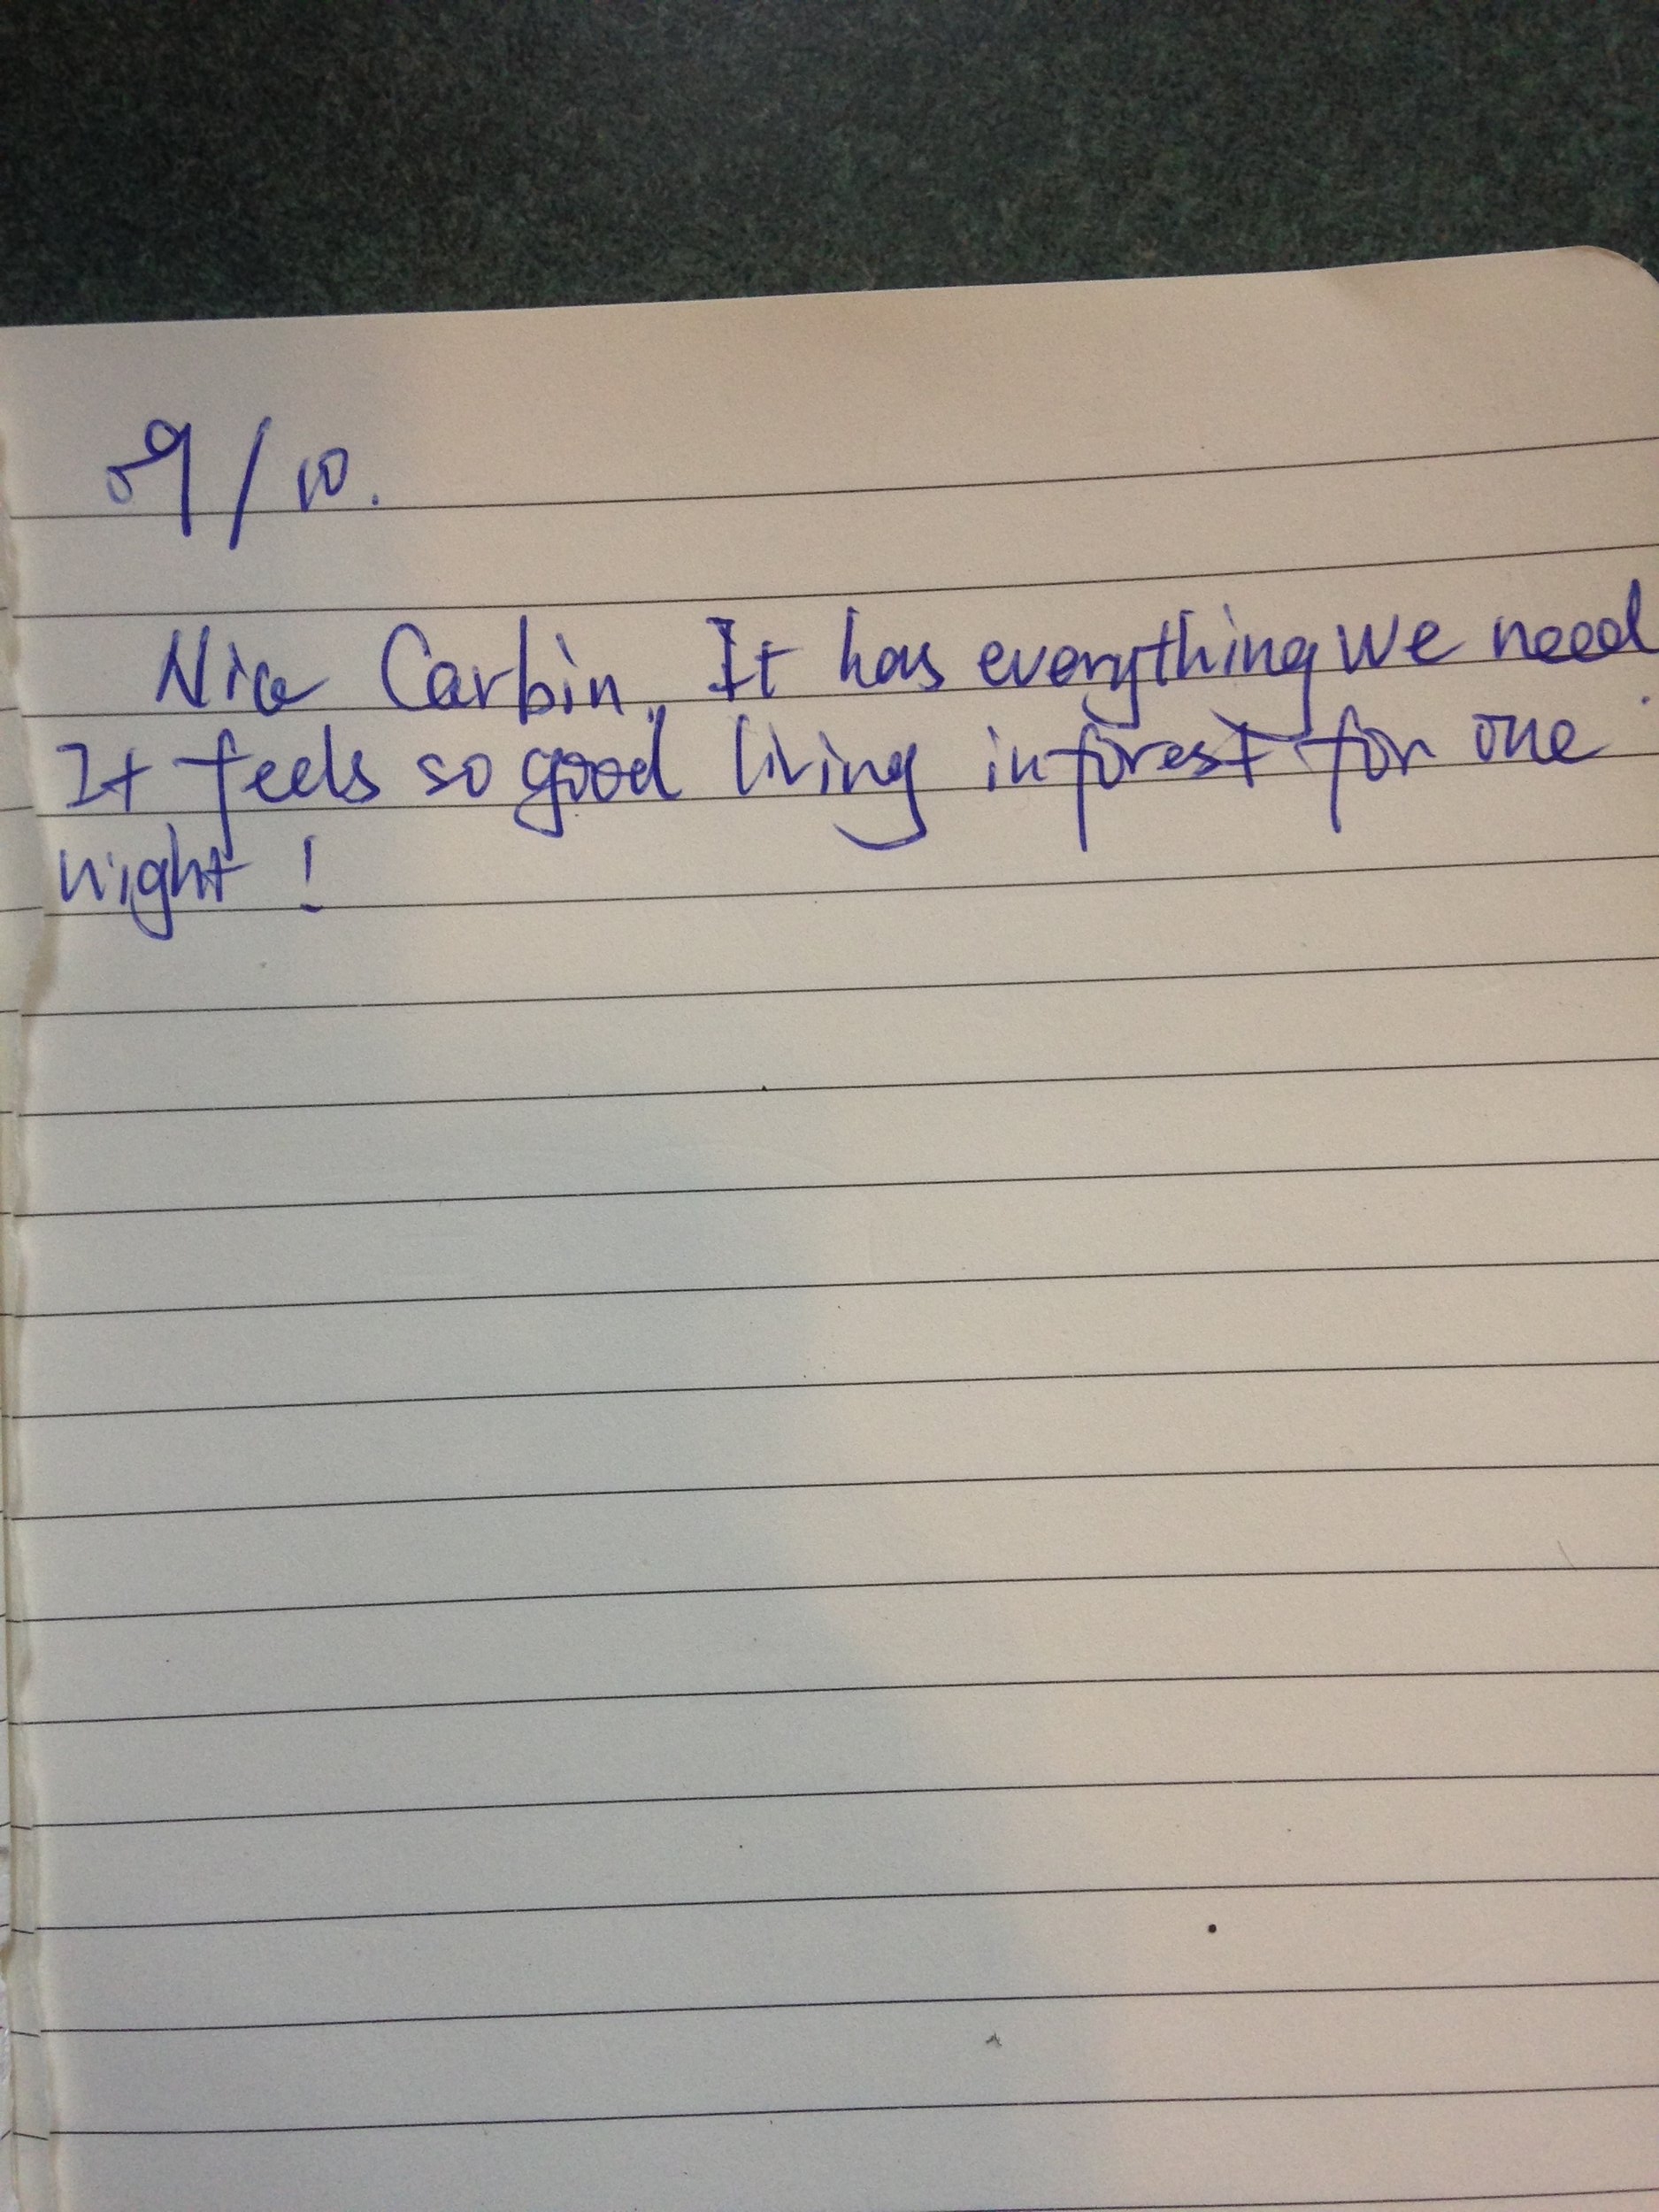 09/10.
Nice Carbin. It has everything we need.
It feels so good living in forest for one
night!